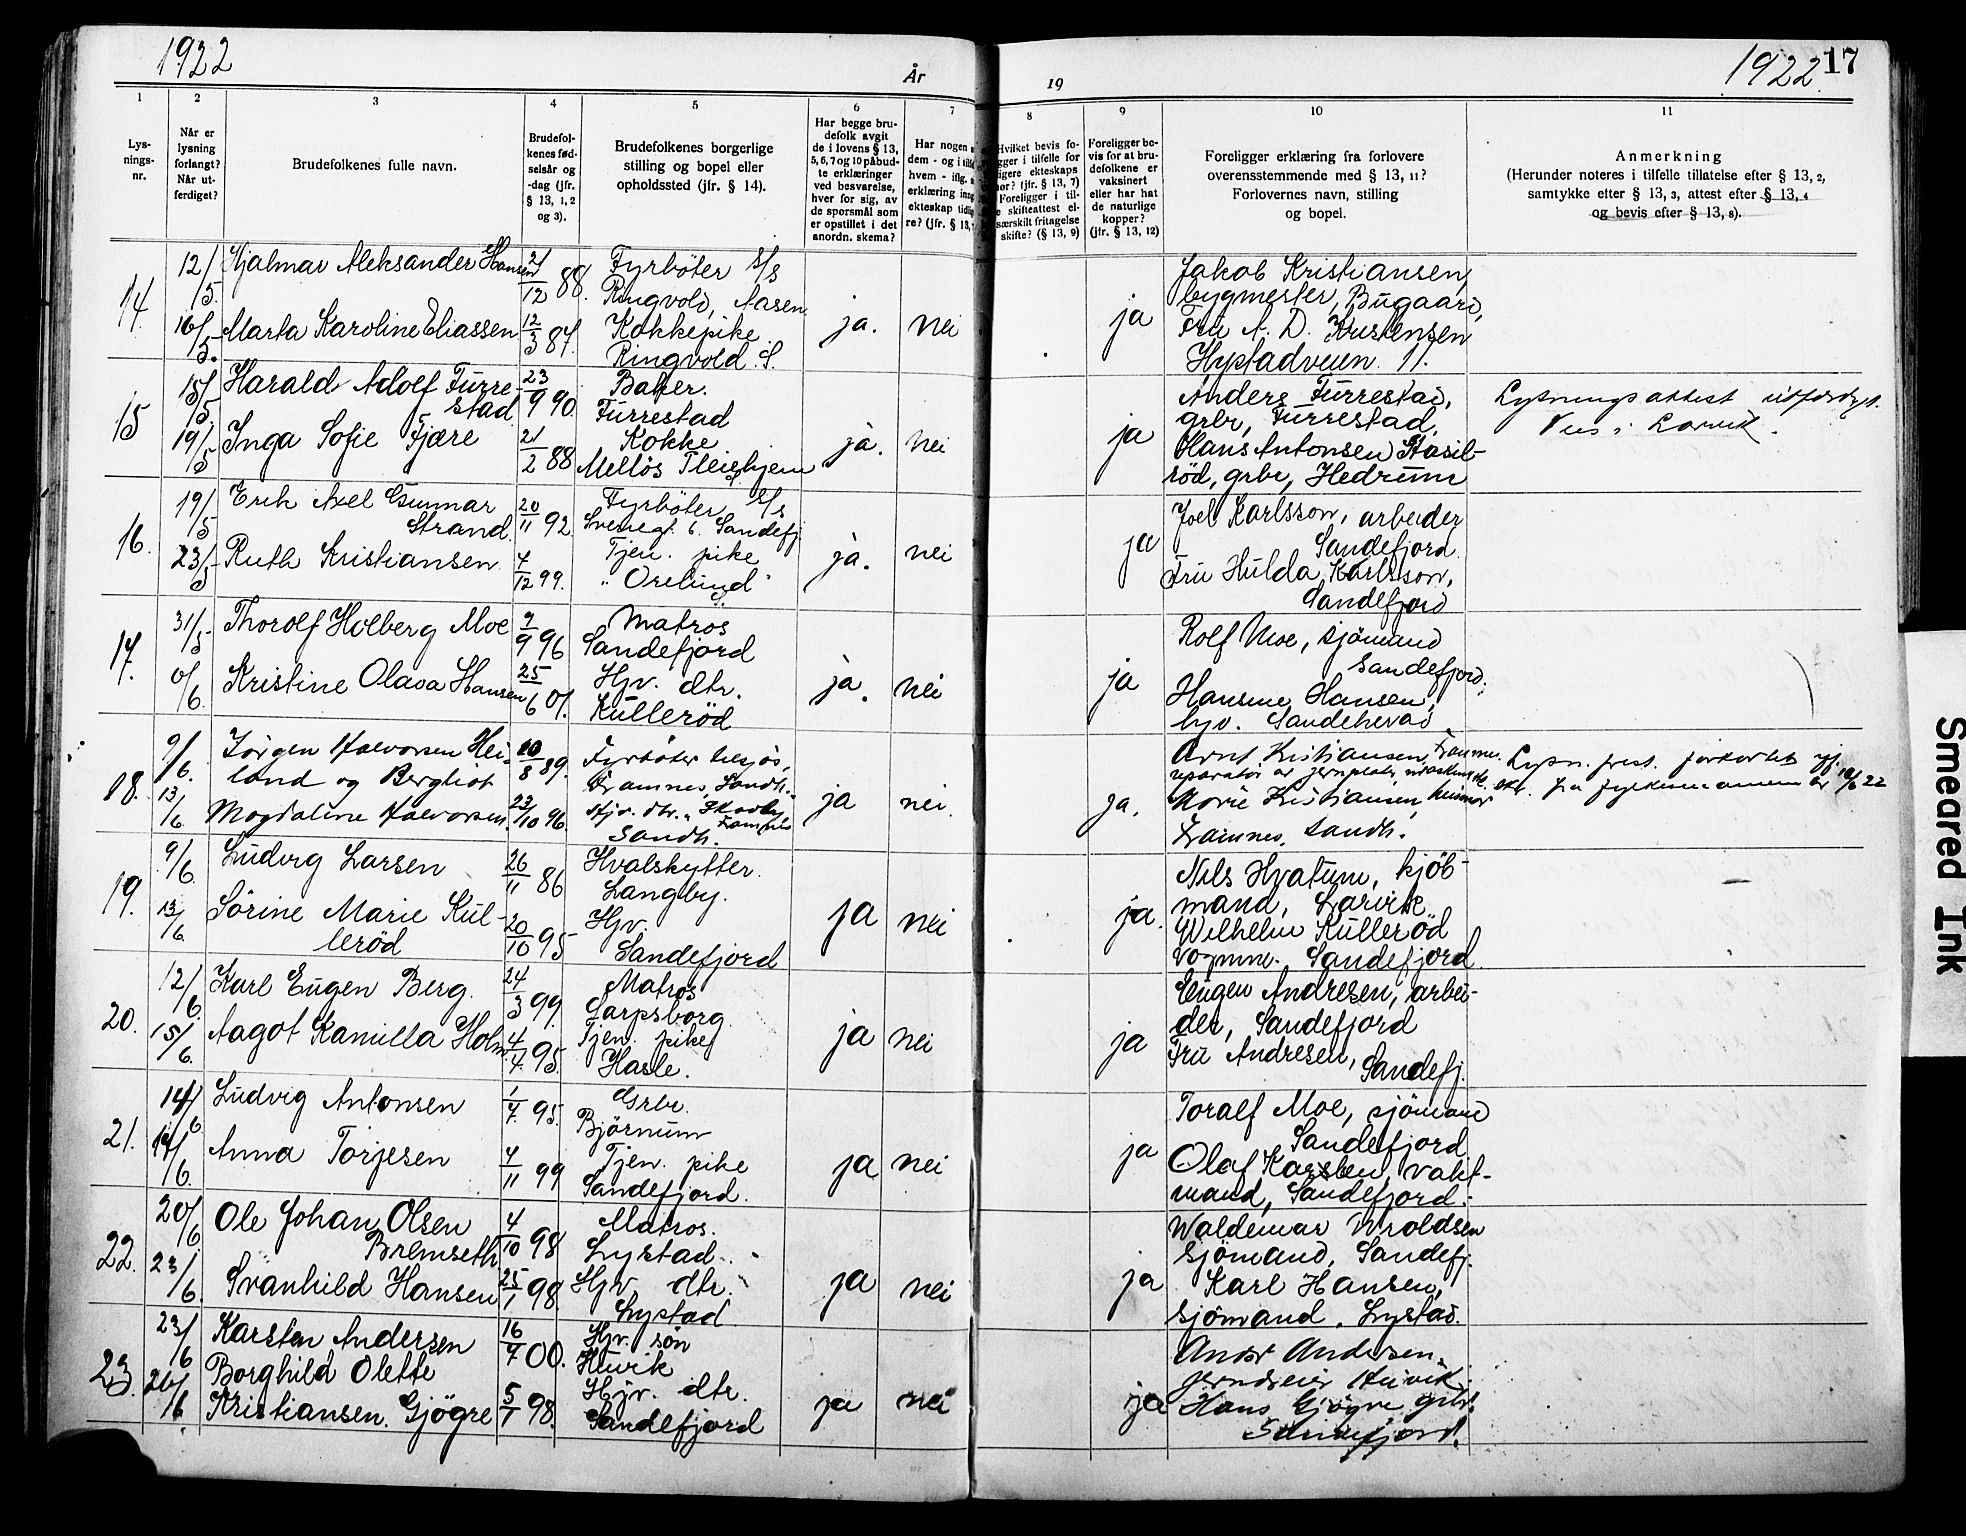 1922
År
19
1922
17
1
2
3
4
5
6
7
8
9
10
11
Lys-
nings-
nr.
Når er
lysning
forlangt?
Når ut-
ferdiget?
Brudefolkenes fulle navn.
Brudefol-
kenes fød-
selsår og
-dag (jfr.
§ 13, 1, 2
og 3).
Brudefolkenes borgerlige
stilling og bopel eller
opholdssted (jfr. § 14).
Har begge bru-
defolk avgit
de i lovens § 13,
5, 6, 7 og 10 påbud-
te erklæringer
ved besvarelse,
hver for sig, av
de spørsmål som
er opstillet i det
anordn. skema?
Har nogen
dem - og i
hvem - iflg.
erklæring
ekteskap
re? (jfr. § 13,
Hvilket bevis fo-
gger i tilfelle for
igere ekteskaps
hør? (jfr. § 13, 7)
Foreligger i til-
e skifteattest el-
særskilt fritagelse
skifte? (§ 13, 9)
Foreligger be-
vis for at bru-
defolkene er
vaksinert
eller har hat
de naturlige
kopper?
(jfr. § 13, 12)
Foreligger erklæring fra forlovere
overensstemmende med § 13, 11?
Forlovernes navn, stilling
og bopel.
Anmerkning
(Herunder noteres i tilfelle tillatelse efter § 13, 2,
samtykke efter § 13, 3, attest efter § 13, 4
og bevis efter § 13, 8).
14.
12/5.
16/5.
Hjalmar Aleksander Hansen
Marta Karoline Eliassen
21/12 88.
12/3 87.
Fyrböter S/S
Ringvold, Aasen
Kokkepike
Ringvold. S.
ja.
nei
ja
Jakob Kristiansen,
bygmester, Bugaard,
Fru A. D. Kristensen
Hystadveien 11.
15
15/5
19/5
Harald Adolf Furre-
stad
Inga Sofie Fjære
23/9 90.
21/2 88
Baker.
Furrestad
Kokke
Mellös Pleiehjem
ja.
nei
ja
Anders Furrestad,
grbr, Furrestad,
Hans Antonsen Hasil-
röd, grbr, Hedrum
Lysningsattest utferdiget.
Vies i Larvik.
16.
19/5
23/5
Erik Axel Gunnar
Strand.
Ruth Kristiansen
20/11 92.
4/12 99.
Fyrböter S/S
6. Sandefj
Tjen. pike
"Orelund"
S.
ja.
nei
ja
Joel Karlsson, arbeider
Sandefjord.
Fru Hulda Karlsson,
Sandefjord
17.
31/5
6/6
Thorolf Holberg Moe
Kristine Olava Hansen
9/9 96
25/6 01.
Matros
Sandefjord
Hjv. dtr.
Kulleröd
ja.
nei
ja
Rolf Moe, sjömand
Sandefjord,
Hansine Hansen,
hjv. Sandeherad
18.
9/6.
13/6
Jörgen Halvorsen Hei-
land og Bergliot
Magdalene Halvorsen.
20/8 89.
23/10 96.
Fyrböter tilsjös,
Framnes, Sandh.
Hjv. dtr. "Skovly"
Framnes
Sandh.
ja
nei.
ja.
Arnt Kristiansen, Framne
Marie Kristiansen, husmor
Framnes, Sandh.
Lysn. frist. forkortet iflg.
skr. fra fylkesmannen av 10/6 22
19.
9/6.
13/6.
Ludvig Larsen
Sörine Marie Kul-
leröd
26/11 86
20/10 95
Hvalskytter.
Langby.
Hjv.
Sandefjord
ja
nei
ja.
Nils Hvatum, kjöb-
mand, Larvik
Wilhelm Kulleröd
vognm. Sandefjord.
20.
12/6.
15/6.
Karl Eugen Berg.
Aagot Kamilla Holm
24/3 99.
4/7. 95.
Matros
Sarpsborg.
Tjen. pike
Hasle.
ja
nei
ja
Eugen Andresen, arbei-
der, Sandefjord
Fru Andresen,
Sandefj.
21.
14/6
17/6.
Ludvig Antonsen
Anna Torjesen
1/7. 95.
4/11 99
Grbr.
Björnum
Tjen. pike
Sandefjord.
ja
nei
ja
Toralf Moe, sjömand
Sandefjord
Olaf Karsten, vakt-
mand, Sandefjord.
22.
20/6
23/6.
Ole Johan Olsen
Bremseth
Svanhild Hansen
4/10 98
25/1 98.
Matros.
Lystad.
Hjv. dtr.
Lystad.
ja
nei
ja
Waldemar Wroldsen
sjömand, Sandefj.
Karl Hansen,
sjömand. Lystad.
23.
23/6
26/6
Karsten Andersen
Borghild Olette
Kristiansen. Gjögre
16/7 00.
5/1 98.
Hjv. sön
Huvik
Hjv. dtr.
Sandefjord
ja
nei
ja
Andr Andersen.
Huvik.
Hans Gjögre grbr.
Sandefjord.
Smeared Ink